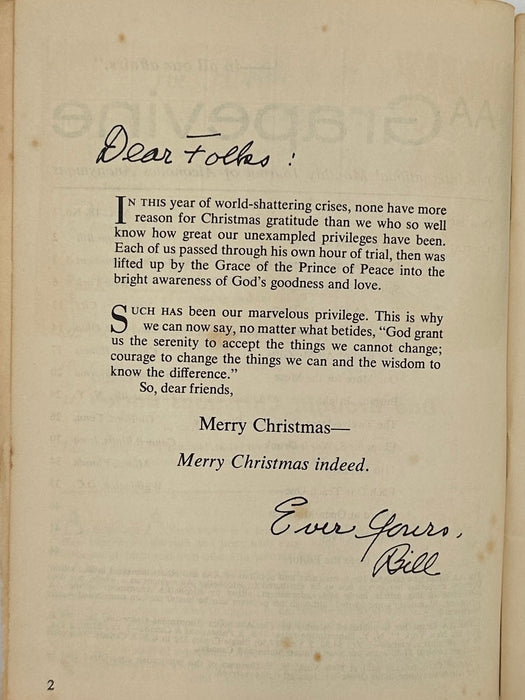 Dear Folks:
IN THIS year of world-shattering crises, none have more
reason for Christmas gratitude than we who so well
know how great our unexampled privileges have been.
Each of us passed through his own hour of trial, then was
lifted up by the Grace of the Prince of Peace into the
bright awareness of God's goodness and love.
SUCH HAS been our marvelous privilege. This is why
we can now say, no matter what betides, "God grant
us the serenity to accept the things we cannot change;
courage to change the things we can and the wisdom to
know the difference."
So, dear friends,
Merry Christmas—
Merry Christmas indeed.
Ever Yours,
Bill
2